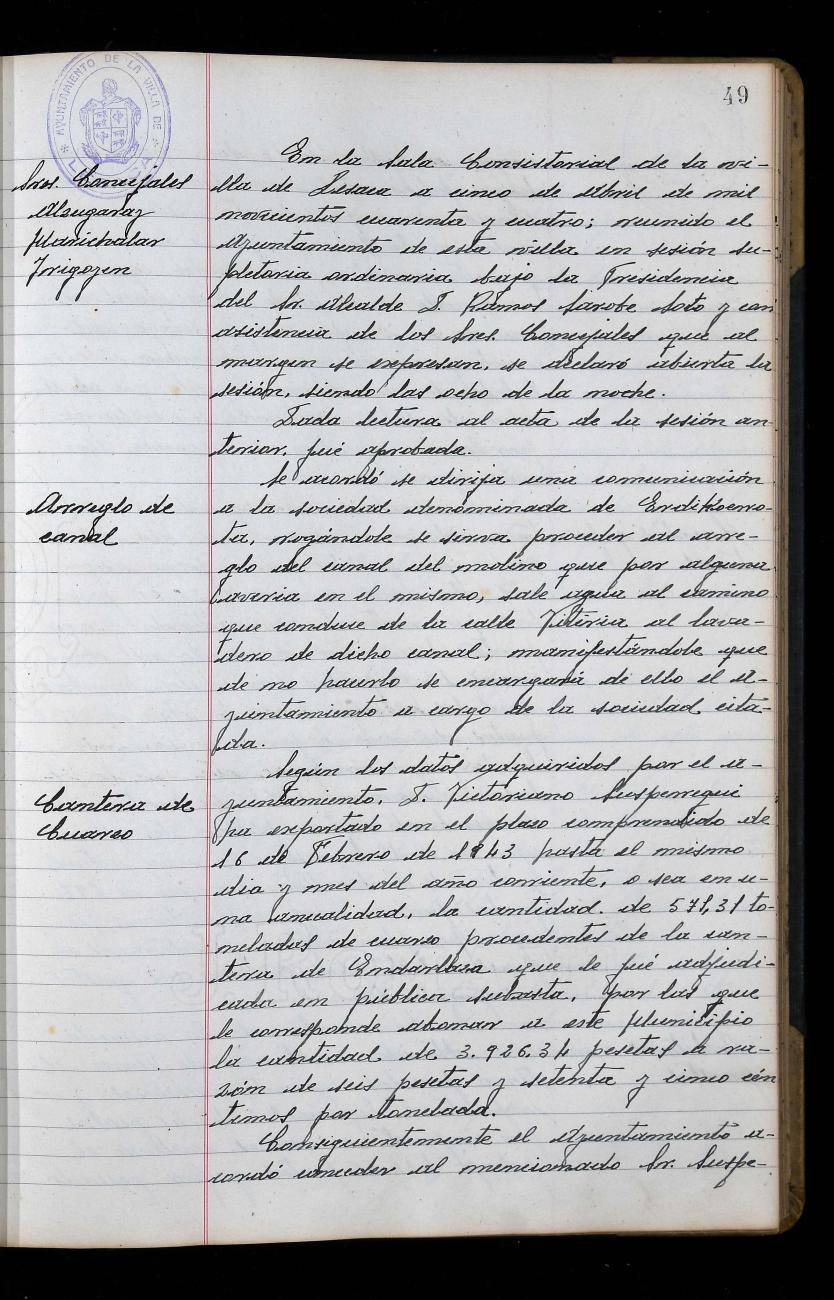 49
AYUNTAMIENTO DE LA VILLA DE
En la Sala Consistorial de la vi-
Sres. Concejales
lla de Lesaca a cinco de Abril de mil
Alzugaray
novecientos cuarenta y cuatro; reunido el
Marichalar
Ayuntamiento de esta villa en sesión su-
Irigoyen
pletoria ordinaria bajo la Presidencia
del Sr. Alcalde D. Ramos Sarobe Soto y con
asistencia de los Sres. Concejales que al
margen se expresan, se declaró abierta la
sesión, siendo las ocho de la noche.
Dada lectura al acta de la sesión an-
terior, fué aprobada.
Se acordó se dirija una comunicación
Arreglo de
a la sociedad denominada de Erdikoerro-
canal
ta, rogándole se sirva proceder al arre-
glo del canal del molino que por alguna
averia en el mismo, sale agua al camino
que conduce de la calle Vitiria al lava-
dero de dicho canal; manifestándole que
de no hacerlo se encargará de ello el A-
yuntamiento a cargo de la sociedad cita-
da.
Según los datos adquiridos por el a-
Cantera de
yuntamiento, D. Victoriano Susperregui
Cuarzo
ha exportado en el plazo comprendido de
16 de Febrero de 1943 hasta el mismo
dia y mes del año corriente, o sea en u-
na anualidad, la cantidad. de 571,31 to-
neladas de cuarzo procedentes de la can-
tera de Endarlaza que le fué adjudi-
cada en pública subasta, por las que
le corresponde abonar a este Municipio
la cantidad de 3.926,34 pesetas a ra-
zón de seis pesetas y setenta y cinco cén
timos por tonelada.
Consiguientemente el Ayuntamiento a-
cordó conceder al mencionado Sr. Suspe-